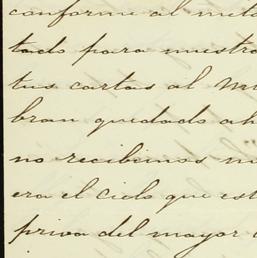 conforme al meto
tado para nuestro
tus cartas al
bran quedado ah
no recibimos
era el cielo que est
priva del mayor